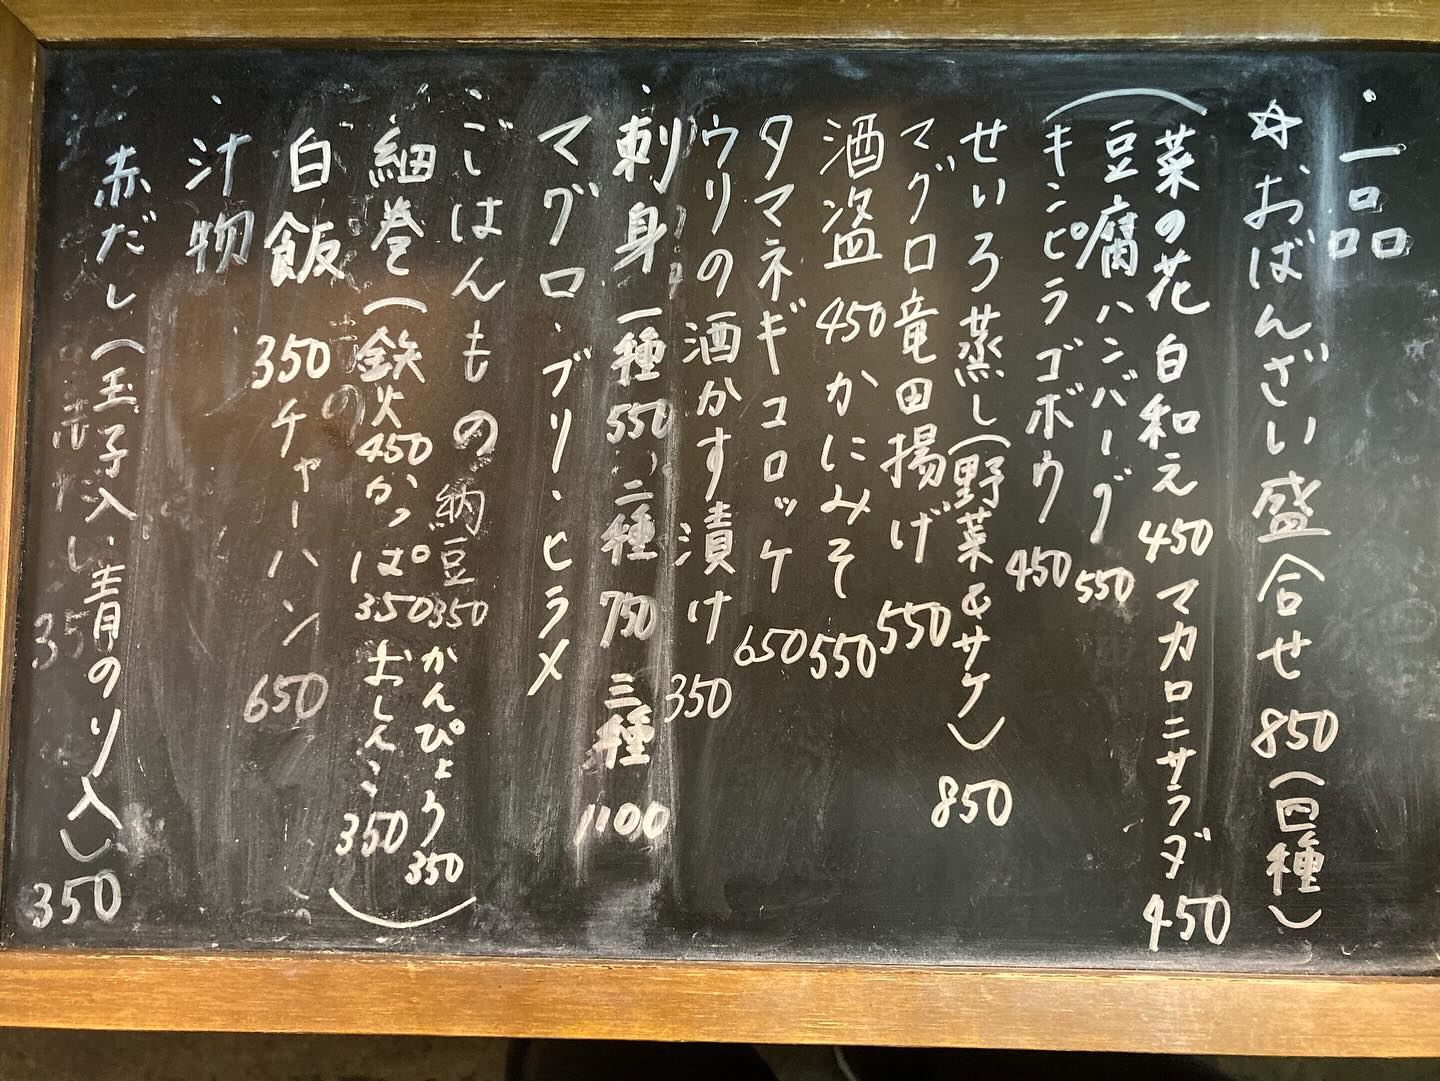 ・一品
☆おばんざい盛合せ 850(四種)
(菜の花 白和え 450 マカロニサラダ 450
豆腐ハンバーグ 550
キンピラゴボウ 450
せいろ蒸し(野菜&サケ) 850
マグロ竜田揚げ 550
酒盗 450 かにみそ 550
タマネギコロッケ 650
ウリの酒かす漬け 350
・刺身 一種 550 二種 750 三種 1100
マグロ・ブリ・ヒラメ
・ごはんもの
細巻(鉄火 450 かっぱ 350 おしんこ 350
納豆 350 かんぴょう 350)
白飯 350 チャーハン 650
・汁物
赤だし(玉子入・青のり入) 350